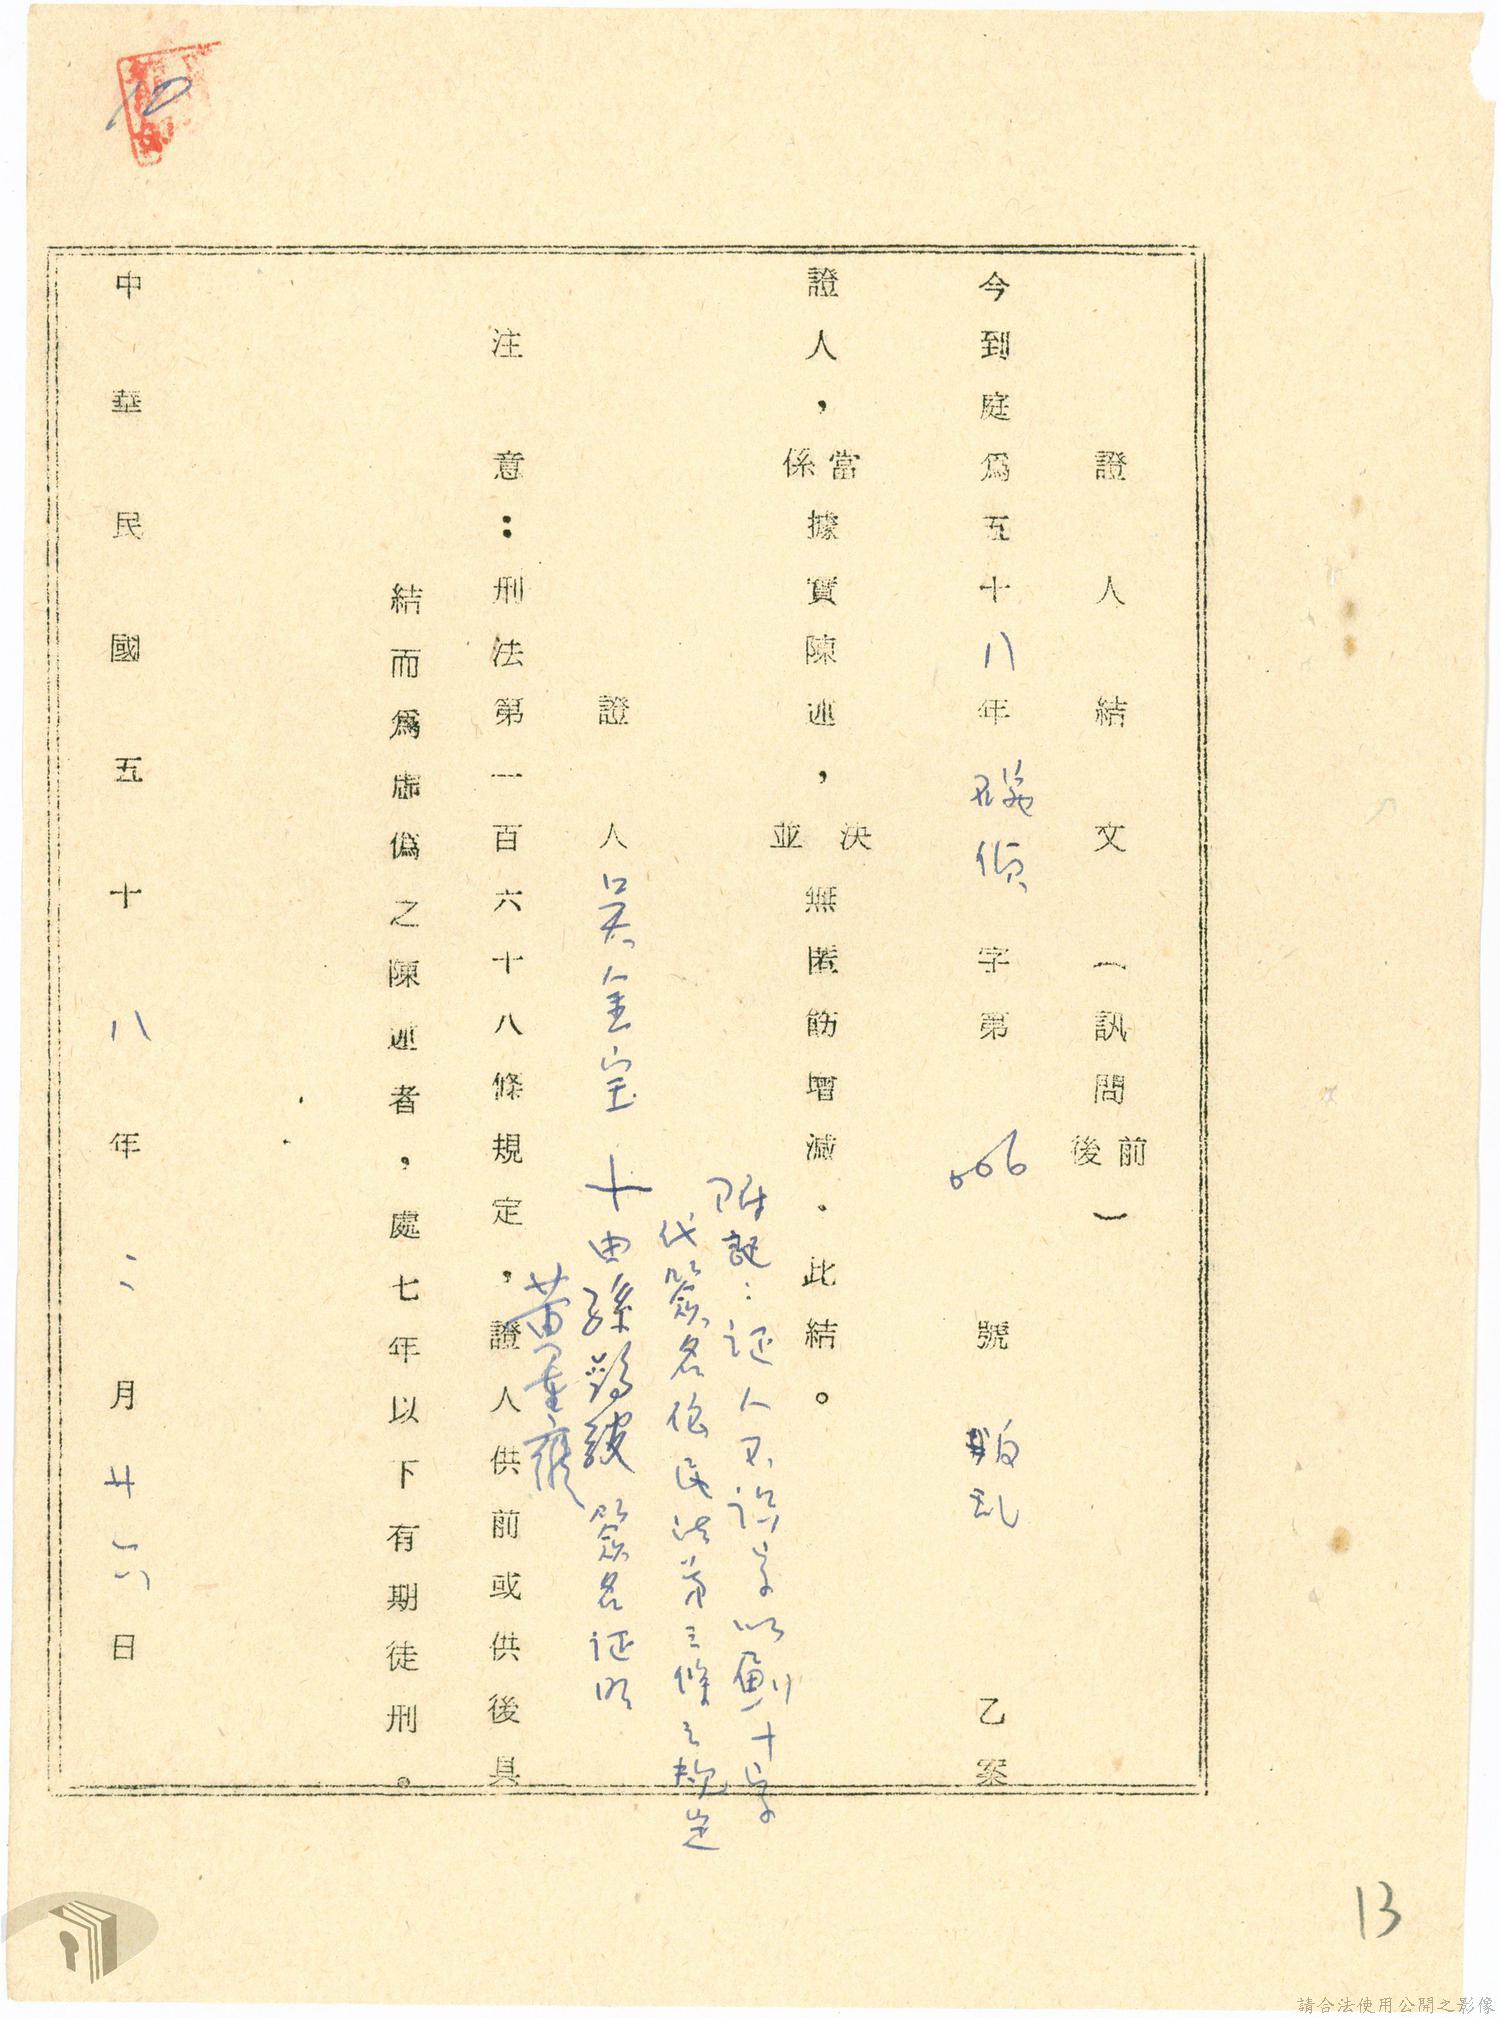 10
證人結文（訊問前後）
今到庭爲五十八年 偵字第006號叛乱乙案
證人，當係據實陳述，決並無匿飾增減．此結。
附記：证人不識字以劃十字
代簽名依民法第三條之規定
證人吴金宝 十 由孫 簽名证明
黃
注意：刑法第一百六十八條規定，證人供前或供後具
結而爲虛僞之陳述者，處七年以下有期徒刑。
中華民國五十八年二月廿六日
13
請合法使用公開之影像